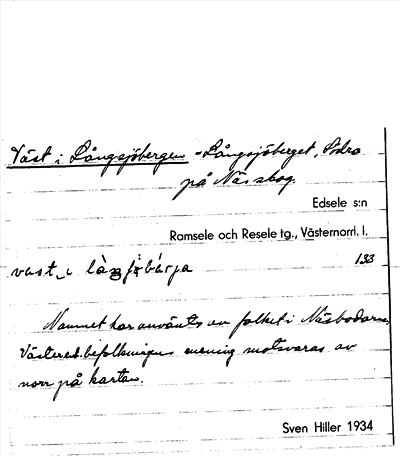 Väst i Långsjöbergen = Långsjöberget, Södra
på Nässkog.
Edsele s:n
Ramsele och Resele tg., Västernorrl. l.
133
väst i
Namnet har använts av folket i Näsbodarna,
Väster ed. befolkningens mening motsvaras av
norr på kartan.
Sven Hiller 1934